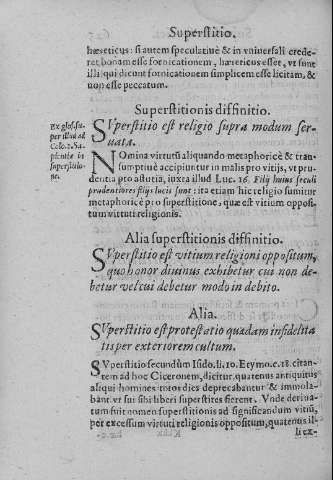 Superstitio.
hæreticus: si autem speculatiuè & in vniuersali crede-
ret bonam esse fornicationem, hæreticus esset, vt sunt
illi qui dicunt fornicationem simplicem esse licitam, &
non esse peccatum.
Superstitionis diffinitio.
Ex glos. su-
per illud ad
Colo. 2. Sa-
pientiæ in
superstitio-
ne.
SVperstitio est religio supra modum ser-
uata.
NOmina virtutũ aliquando metaphoricè & tran-
sumptiuè accipiuntur in malis pro vitijs, vt pru-
dentia pro astutia, iuxta illud Luc. 16. Filij huius seculi
prudentiores filijs lucis sunt: ita etiam hic religio sumitur
metaphoricè pro superstitione, quæ est vitium opposi-
tum virtuti religionis.
Alia superstitionis diffinitio.
SVperstitio est vitium religioni oppositum,
quo honor diuinus exhibetur cui non de-
betur vel cui debetur modo indebito.
Alia.
SVperstitio est protestatio quædam infidelita
tis per exteriorem cultum.
SVperstitio secundùm Isido. li. 10. Etymo. c. 18. citan-
tem ad hoc Ciceronem, dicitur, quatenus antiquitus
aliqui homines totos dies deprecabantur & immola-
bant vt sui sibi liberi superstites fierent. Vnde deriua-
tum fuit nomen superstitionis ad significandum vitiũ,
per excessum virtuti religionis oppositum, quatenus il-
li ex-